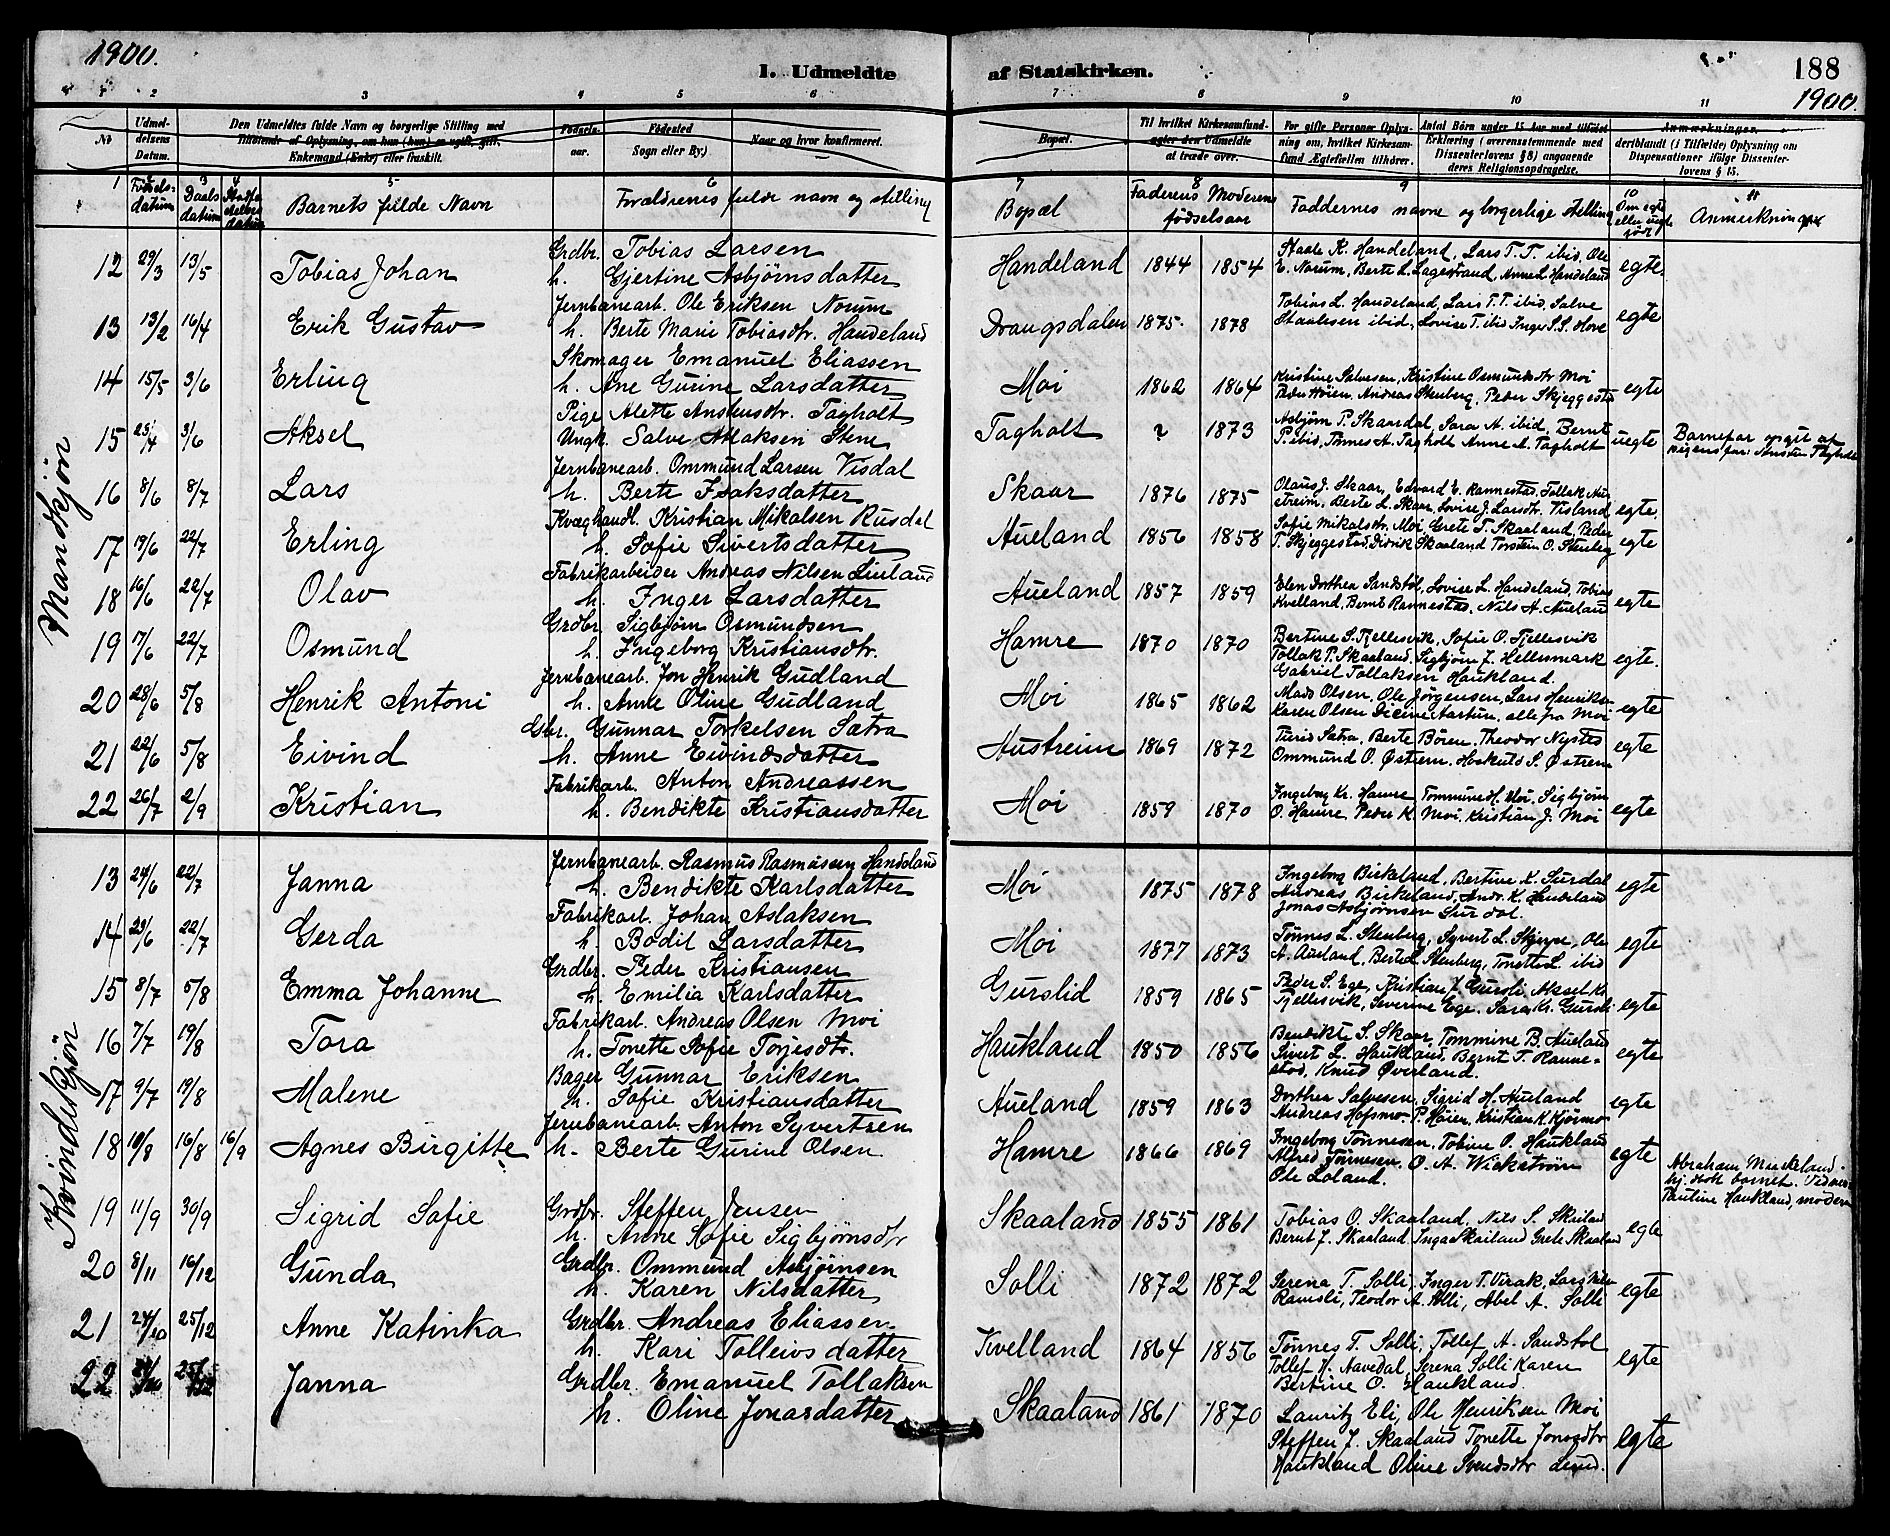 1900.
I. Udmeldte af Statskirken.
188
1900.
1 2 3 4 5 6 7 8 9 10 11
No
Udmeldelsens Datum.
Den Udmeldtes fulde Navn og borgerlige Stilling med
Tilføiende af Oplysning, om han (hun) er ugift, gift,
Enkemand (Enke) eller fraskilt.
Fødsels-aar.
Fødested
Sogn eller By.)
Naar og hvor konfirmeret.
Bopæl.
Til hvilket Kirkesamfund
agter den Udmeldte
at træde over.
For gifte Personer Oplys-
ning om, hvilket Kirkesam-
fund Ægtefællen tilhører.
Antal Børn under 15 Aar med tilføiet
Erklæring (overensstemmende med
Dissenterlovens § 8) angaaende
deres Religionsopdragelse.
Anmærkninger,
deriblandt (i Tilfælde) Oplysning om
Dispensationer ifølge Dissenter-
lovens § 15.
1 2 Fødsels-datum 3 Daabs datum 4 datum 5 Barnets fulde Navn 6 Forældrenes fulde navn og stilling
7 Bopæl 8 Faderens Moderens fødselsaar 9 Faddernes navne og borgerlige stilling 10 Om egte eller uegte født 11 Anmerkninger
Mandkjøn
12 29/3 13/5 Tobias Johan Grdbr. Tobias Larsen
h. Gjertine Asbjørnsdatter
Handeland 1844 1854 Staale K. Handeland, Lars T. T. ibid, Ole
E. Norum, Berte L. Lagestrand, Anne L. Handeland egte
13 13/2 16/4 Erik Gustav Jernbanearb. Ole Eriksen Norum
h. Berte Marie Tobiasdtr. Handeland
Draugsdalen 1875. 1878 Tobias L. Handeland, Lars T. T. ibid, Salve
Staalesen ibid, Lovise T. ibid Inger S. S. Hove egte
14 15/5 3/6 Erling Skomager Emanuel Eliassen
h. Ane Gurine Larsdatter
Moi 1862 1864 Kristine Salvesen, Kristine Osmundsdtr Moi
Peder Høien, Andreas Stenberg, Peder Skjeggestad egte
15 3/6 Aksel Pige Alette Anstensdtr. Tagholt
Ungk. Salve Atlaksen Stene
Tagholt ? 1873 Asbjørn P. Skaardal, Sara A. ibid, Bernt
P. ibid, Tønnes A. Tagholt Anne A. Tagholt uegte
Barnefar opgit af
pigens far: Ansten Tagholt
16 8/6 8/7 Lars Jernbanearb. Ommund Larsen Visdal
h. Berte Isaksdatter
Skaar 1876 1875 Olaus J. Skaar, Edvard E. Rannestad, Tollak Au-
streim, Berte L. Skaar, Lovise J. Larsdtr. Visland egte.
17 19/6 22/7 Erling Kvæghandl. Kristian Mikalsen Rusdal
h. Sofie Sivertsdatter
Aueland 1856 1858 Sofie Mikalsdtr. Moi Grete T. Skaaland, Peder
T. Skjeggestad, Didrik Skaaland Torstein O. Stenberg egte
18 16/6 22/7 Olav Fabrikarbeider Andreas Nilsen Lieland
h. Inger Larsdatter
Aueland 1857 1859 Elen Dorthea Sandstøl, Lovise L. Handeland, Tobias
Kvelland, Bernt Rannestad, Nils A. Aueland egte
19 17/6 22/7 Osmund Grdbr. Sigbjørn Osmundsen
h. Ingeborg Kristiansdtr.
Hamre 1870 1870 Bertine S. Fjellesvik, Sofie O. Fjellesvik
Tollak P. Skaaland, Sigbjørn J. Hellesmark
Gabriel Tollaksen Haukland. egte.
20 28/6 5/8 Henrik Antoni Jernbanearb. Jon Henrik Gudland
h. Anne Oline Gudland
Moi 1865 1862 Mads Olsen, Ole Jørgensen, Lars Henriksen
Karen Olsen alle fra Moi egte
21 22/6 5/8 Eivind Gbr. Gunnar Torkelsen Satra
h. Anne Eivindsdatter
Austreim 1869 1872 Turid Satra, Berte Bøen, Theodor Nysted
Ommund O. Østrem, Hoskuld S. Østrem egte
22 26/7 2/9 Kristian Fabrikarb. Anton Andreassen
h. Bendikte Kristiansdatter
Moi 1859 1870 Ingeborg Kr. Hamre Tommine H. Moi, Sigbjørn
O. Hamre, Peder K. Moi, Kristian J. Moi egte
Kvindekjøn
13 24/6 22/7 Janna Jernbanearb. Rasmus Rasmussen Handeland
h. Bendikte Karlsdatter
Moi 1875 1878 Ingeborg Birkeland, Bertine K. Surdal
Andreas Birkeland, Andr. K. Handeland
Jonas Asbjørnsen Surdal. egte
14 23/6 22/7 Gerda Fabrikarb. Johan Aslaksen
h. Bodil Larsdatter
Moi 1877 1873 Tønnes L. Stenberg, Syvert L. Skjerpe, Ole
A. Aueland, Berte L. Stenberg, Tonette L. ibid egte
15 8/7 5/8 Emma Johanne Grdbr. Peder Kristiansen
h. Emilia Karlsdatter
Gurslid 1859 1865 Peder S. Ege, Kristian J. Gursli Aksel K.
Fjellesvik, Severine Ege. Sara Kr. Gursli egte
16 7/7 19/8 Tora Fabrikarb. Andreas Olsen Moi
h. Tonette Sofie Torjesdtr.
Haukland 1850 1856 Bendikte S. Skaar, Tommine B. Aueland
Sivert L. Haukland, Bernt T. Ranne-
stad, Knud Øverland. egte
17 9/7 19/8 Malene Bager Gunnar Eriksen
h. Sofie Kristiansdatter
Aueland 1859 1863 Dorthea Salvesen, Sigrid H. Aueland
Andreas Hofsmo. P. Høier, Kristian K. Kjørmo egte
18 10/8 16/8 16/9 Agnes Birgitte Jernbanearb. Anton Syvertsen
h. Berte Gurine Olsen
Hamre 1866 1869 Ingeborg Tønnesen, Tobine O. Haukland
Alfred Tønnesen, O. A. Wickstrøm
Ole Loland. egte
Abraham
hj.døbt barnet.
Pauline Haukland, moderen
19 11/9 30/9 Sigrid Sofie Grdbr. Steffen Jensen
h. Anne Sofie Sigbjørnsdtr
Skaaland 1855 1861 Tobias O. Skaaland, Nils S. Skailand
Bernt J. Skaaland Inga Skailand Grete Skaaland egte
20 8/11 16/12 Gunda Grdbr. Ommund Asbjørnsen
h. Karen Nilsdatter
Solli 1872 1872 Serena T. Solli, Inger T. Virak, Lars Nils.
Ramsli, Teodor A. Solli, Abel A. Solli egte
21 24/10 25/12 Anne Katinka Grdbr. Andreas Eliassen
h. Kari Tolleivsdatter
Kvelland 1864 1856 Tønnes T. Solli, Tollef A. Sandstøl
Tollef H. Aavedal, Serena Solli Karen
Bertine O. Haukland. egte
22 Janna Grdbr. Emanuel Tollaksen
h. Oline Jonasdatter
Skaaland 1861 1870 Lauritz Eli, Ole Henriksen Moi
Steffen J. Skaaland Tonette Jonasdtr
Haukland Oline Svendsdtr ibid. egte